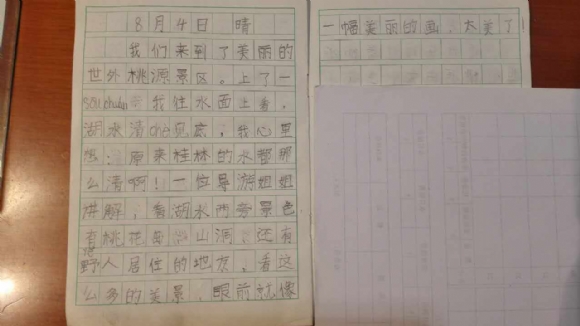 8月4日 晴
我们来到了美丽的
世外桃源景区。上了一
sōu chuán 我往水面上看，
湖水清chè见底，我心里
想：原来桂林的水都那
么清啊！一位导游姐姐
讲解，看湖水两旁景色
有桃花 山洞，还有
野人居住的地方，看这
么多的美景，眼前就像
一幅美丽的画，太美了！